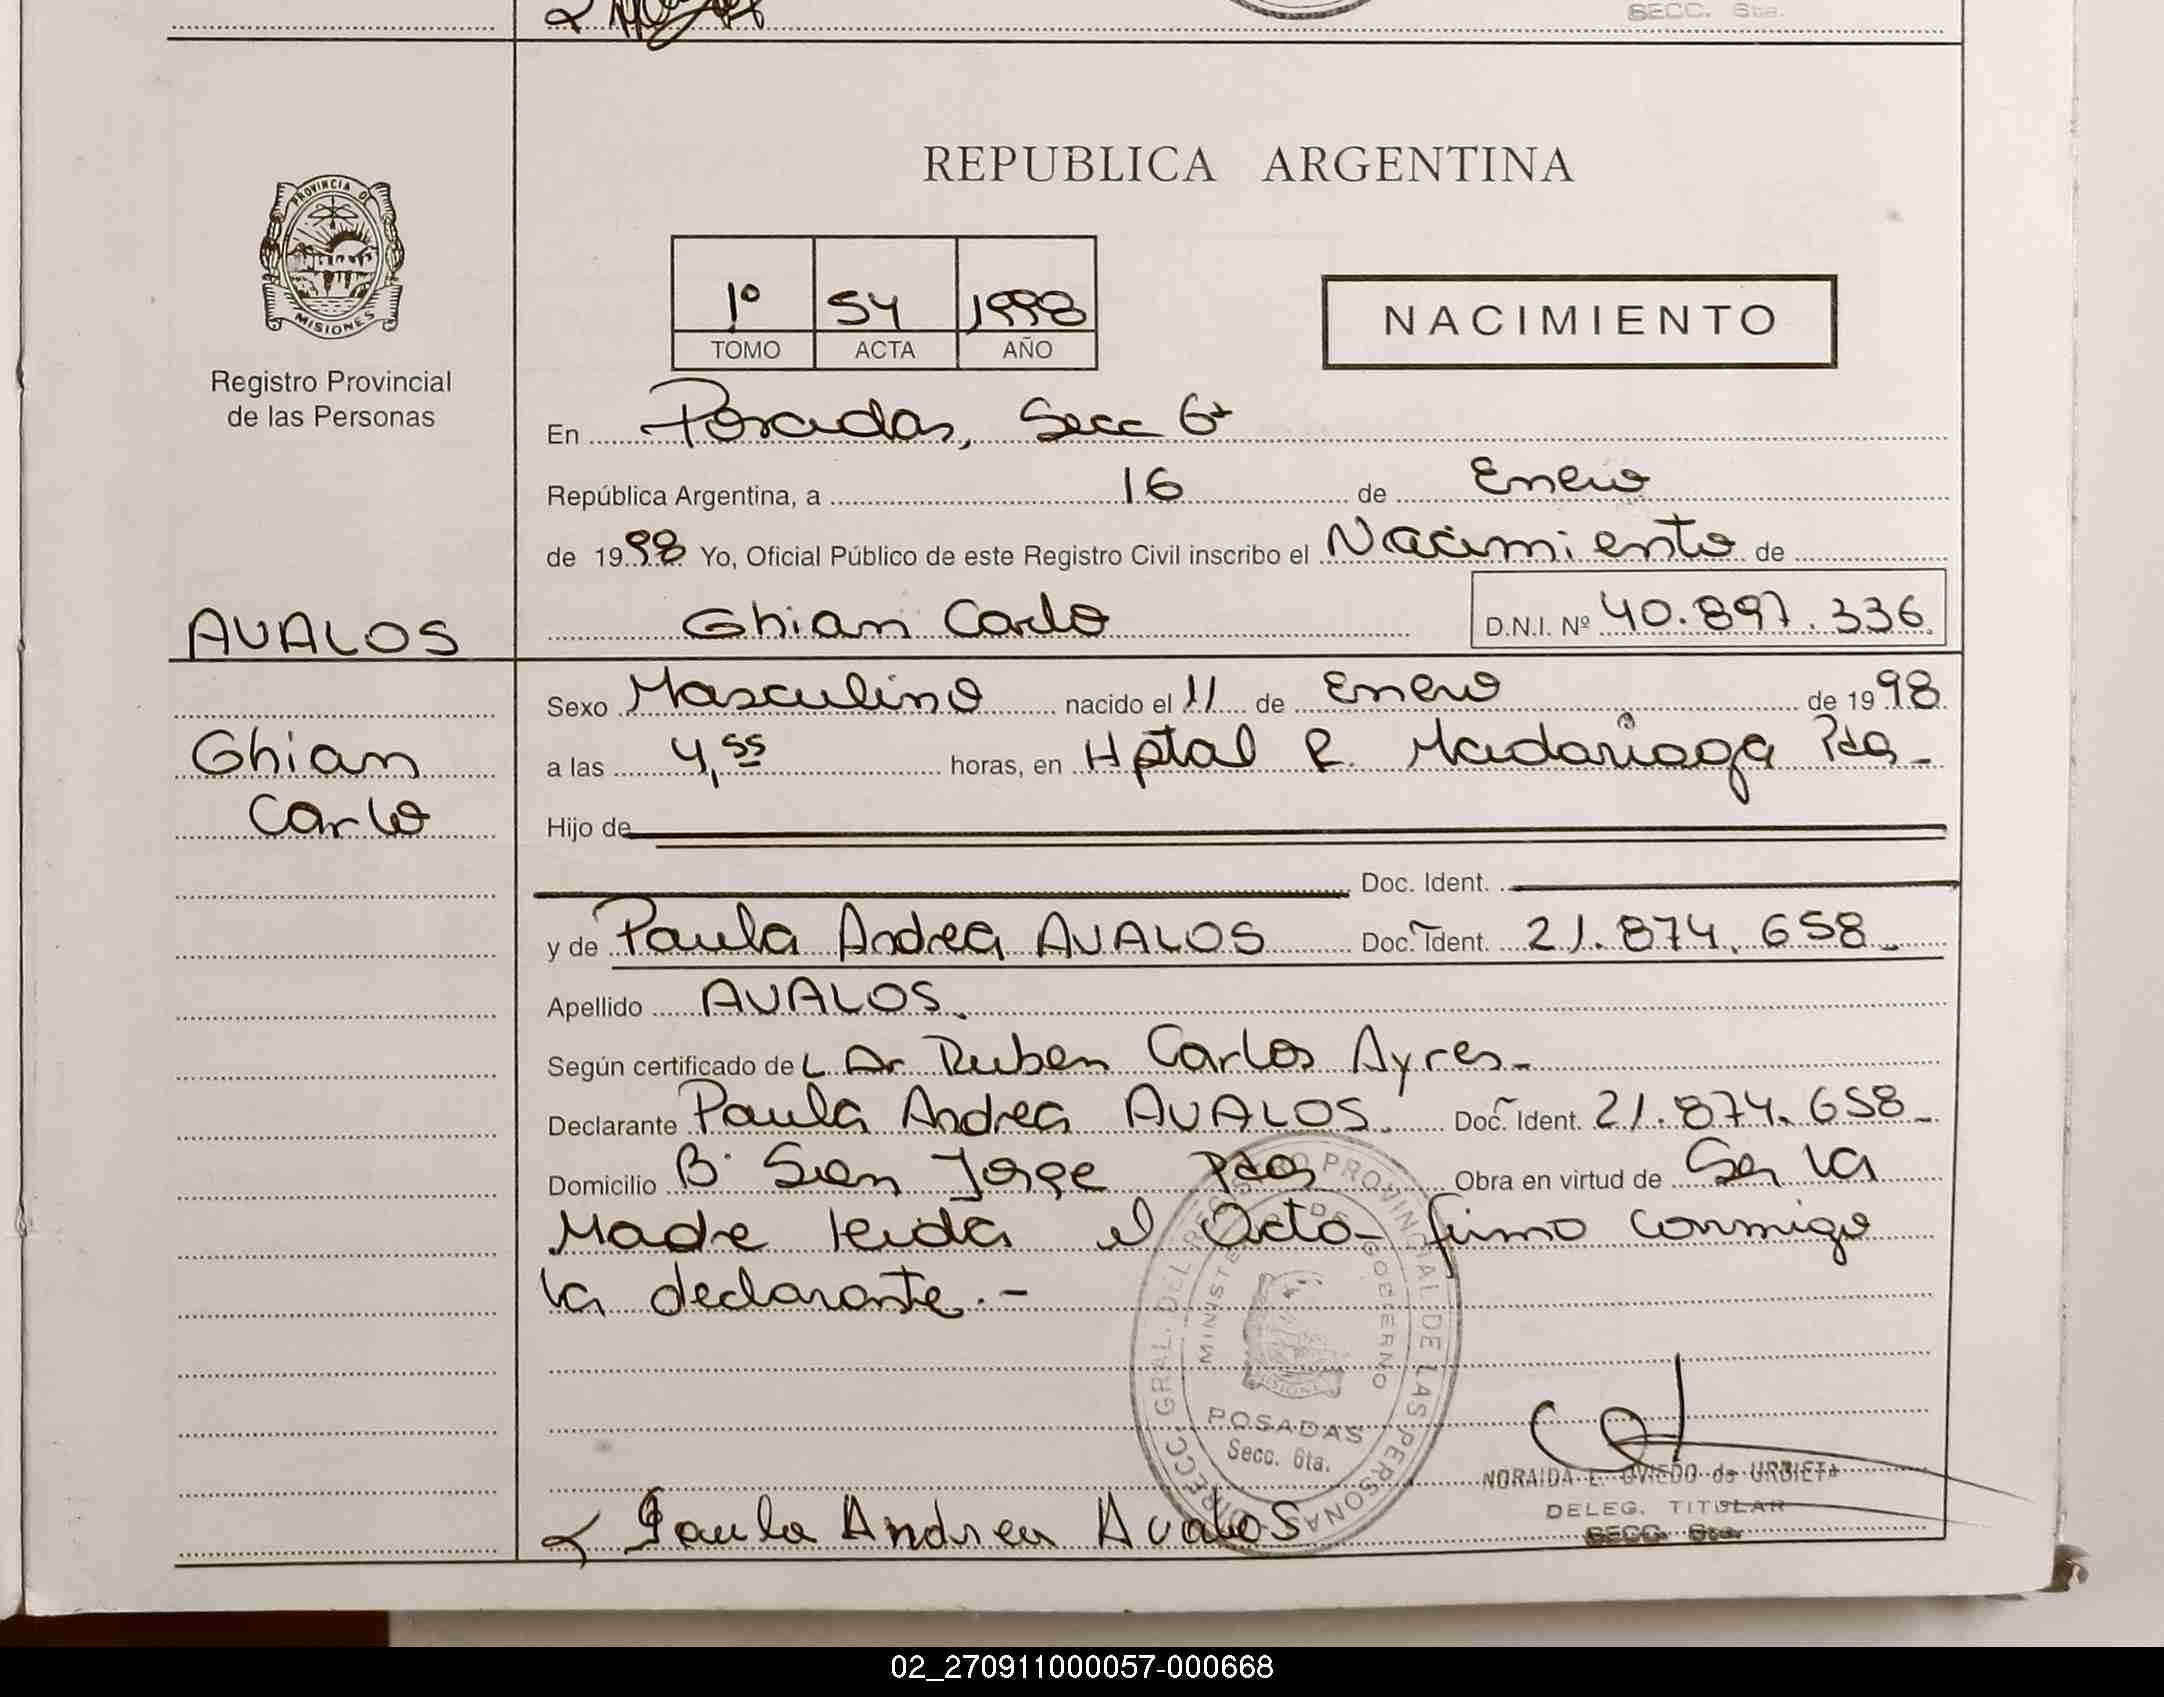 SECC. 6ta.
REPUBLICA ARGENTINA
PROVINCIA DE
MISIONES
Registro Provincial
de las Personas
1º 54 1998
TOMO ACTA AÑO
NACIMIENTO
En Posadas, Secc 6ª
República Argentina, a 16 de Enero
de 1998 Yo, Oficial Público de este Registro Civil inscribo el Nacimiento de
AVALOS
Ghian Carlo D.N.I. Nº 40.897.336
Ghian
Carlo
Sexo Masculino nacido el 11 de Enero de 1998
a las 4,55 horas, en Hptal R. Madariaga Pdas-
Hijo de
Doc. Ident.
y de Paula Andrea AVALOS Doc. Ident. 21.874.658-
Apellido AVALOS.
Según certificado de L Dr Ruben Carlos Ayres-
Declarante Paula Andrea AVALOS. Doc. Ident. 21.874.658-
Domicilio Bº San Jorge Pdas Obra en virtud de Ser la
Madre leida el Acta- firmo conmigo
la declarante.-
DIRECC. GRAL. DEL REGISTRO PROVINCIAL DE LAS PERSONAS
MINISTERIO DE GOBIERNO
MISIONES
POSADAS
Secc. 6ta.
NORAIDA E. OVIEDO de URBIETA
DELEG. TITULAR
SECC. 6ta.
Paula Andrea Avalos
02_270911000057-000668